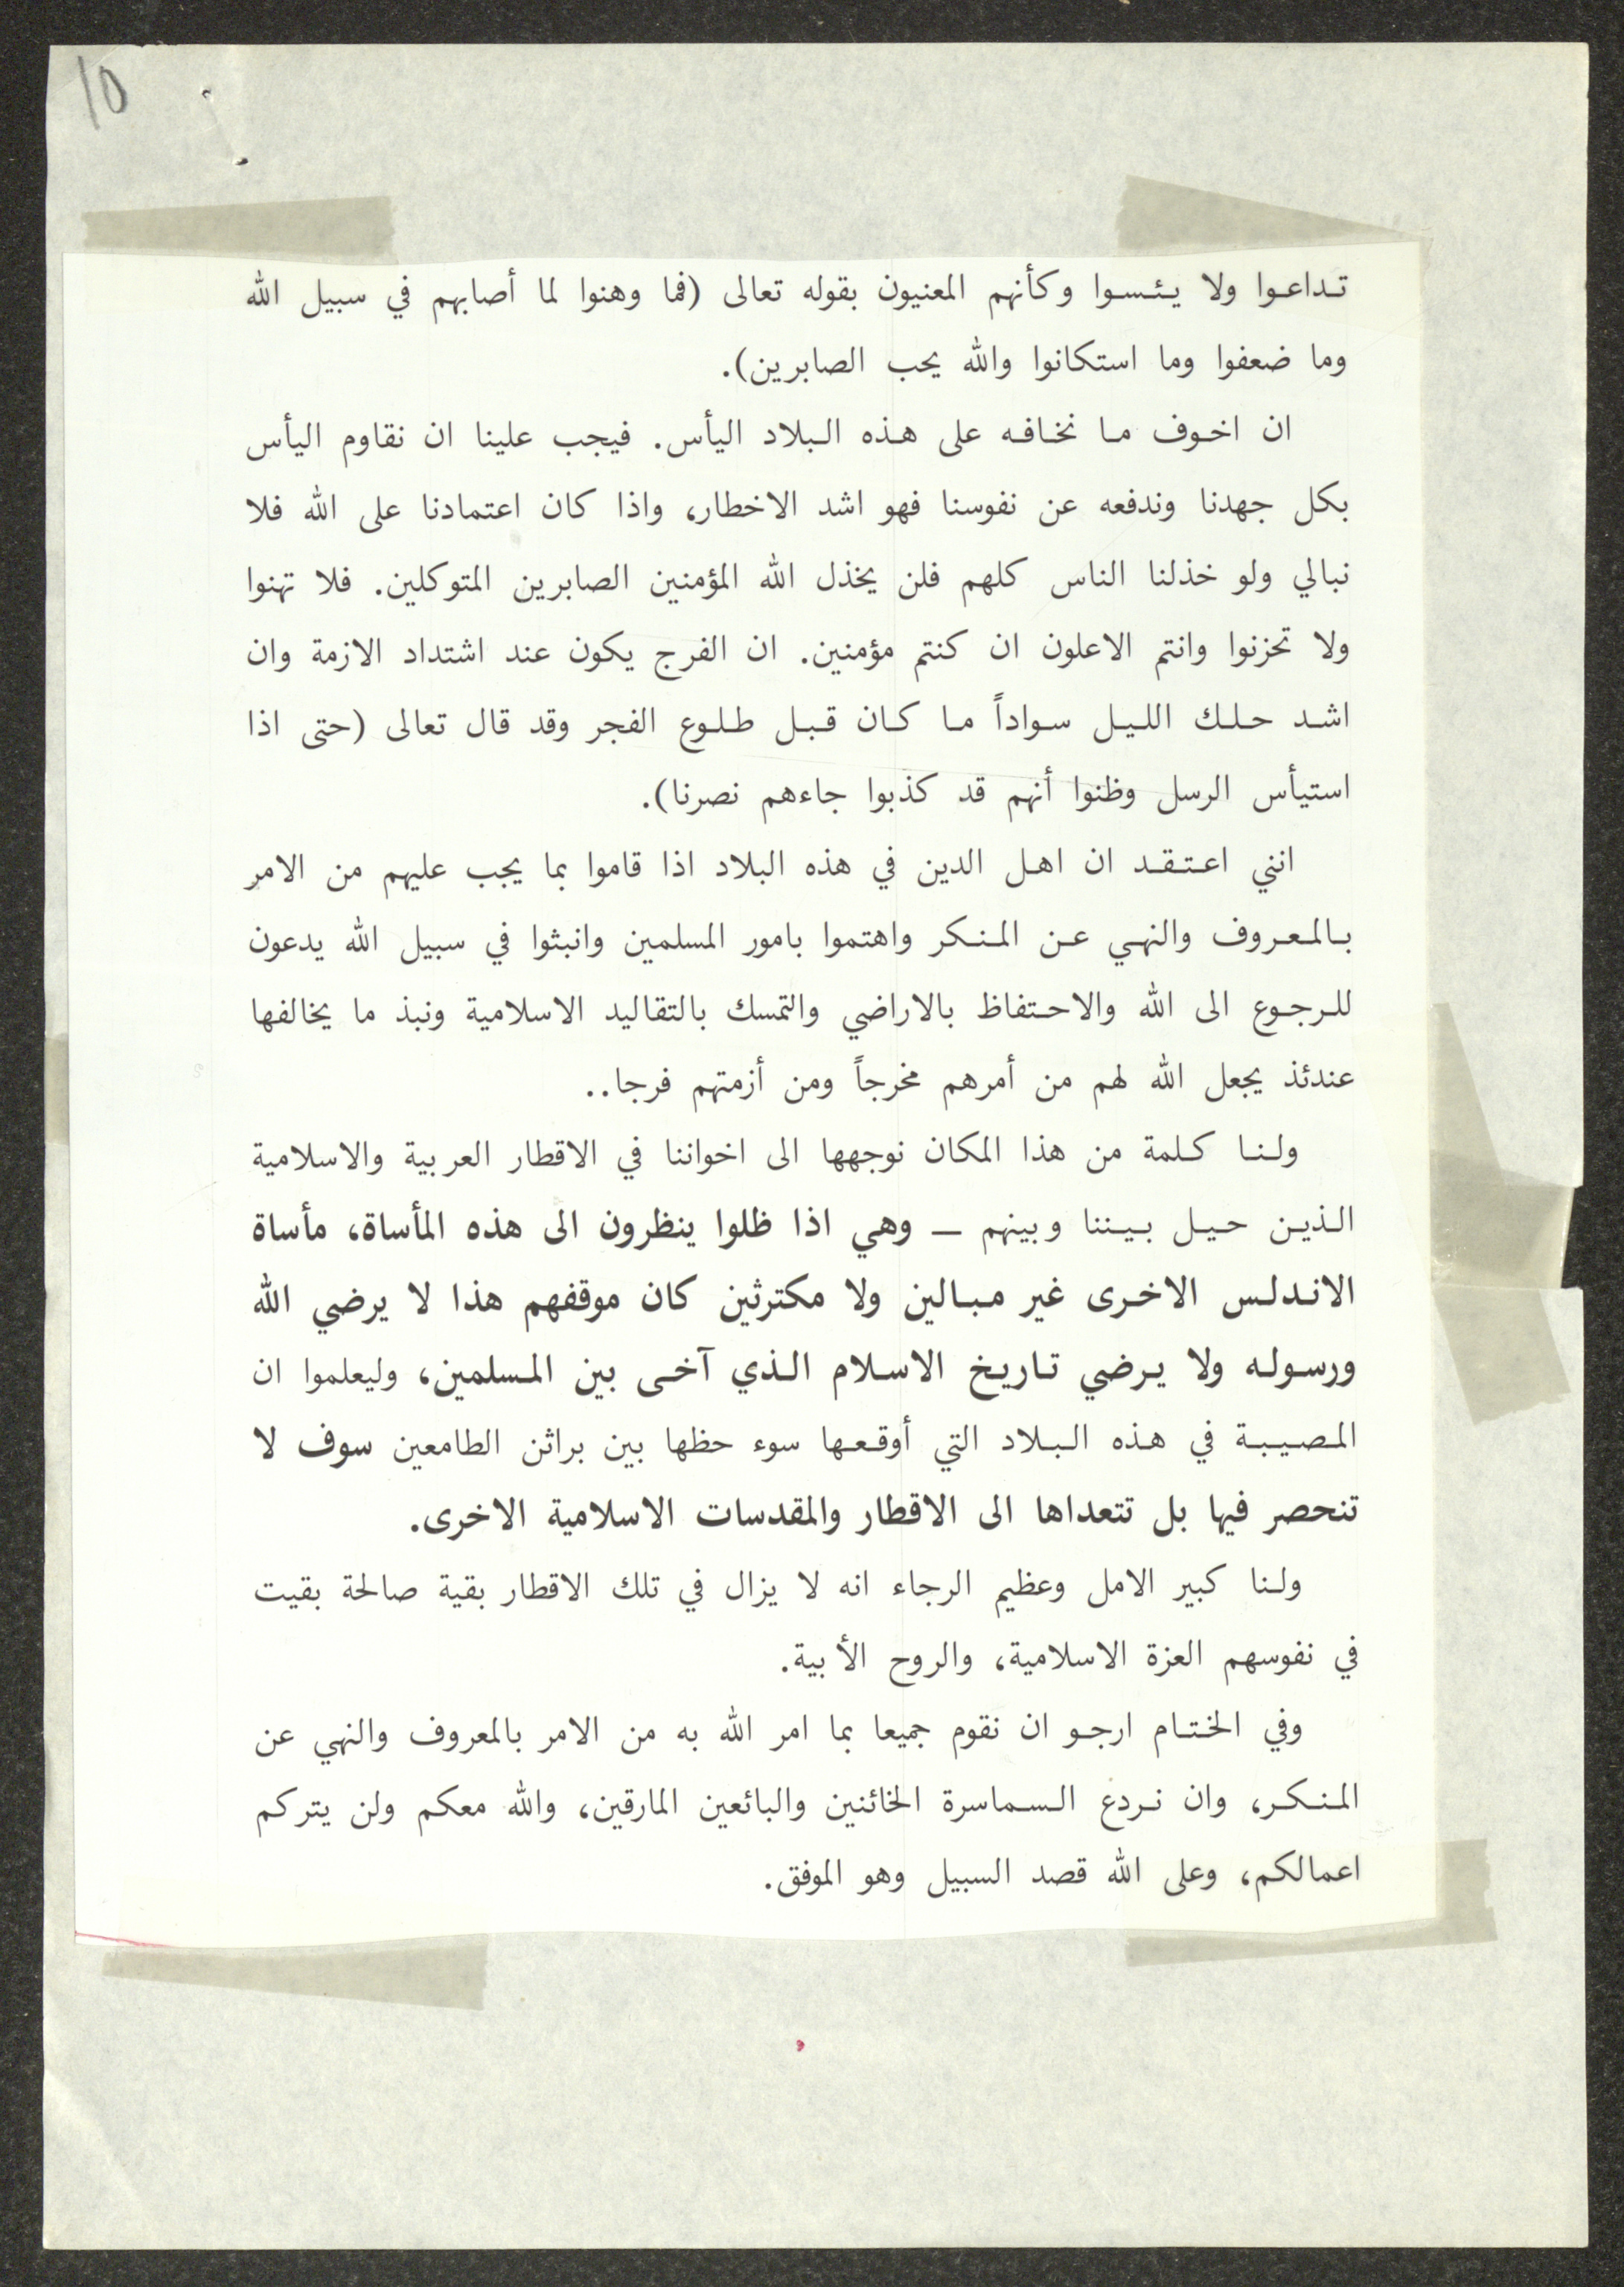 10
تداعوا ولا يئسوا وكأنهم المعنيون بقوله تعالى (فما وهنوا لما أصابهم في سبيل الله
وما ضعفوا وما استكانوا والله يحب الصابرين).
ان اخوف ما نخافه على هذه البلاد اليأس. فيجب علينا ان نقاوم اليأس
بكل جهدنا وندفعه عن نفوسنا فهو اشد الاخطار، واذا كان اعتمادنا على الله فلا
نبالي ولو خذلنا الناس كلهم فلن يخذل الله المؤمنين الصابرين المتوكلين. فلا تهنوا
ولا تحزنوا وانتم الاعلون ان كنتم مؤمنين. ان الفرج يكون عند اشتداد الازمة وان
اشد حلك الليل سواداً ما كان قبل طلوع الفجر وقد قال تعالى (حتى اذا
استيأس الرسل وظنوا أنهم قد كذبوا جاءهم نصرنا).
انني اعتقد ان اهل الدين في هذه البلاد اذا قاموا بما يجب عليهم من الامر
بالمعروف والنهي عن المنكر واهتموا بامور المسلمين وانبثوا في سبيل الله يدعون
للرجوع الى الله والاحتفاظ بالاراضي والتمسك بالتقاليد الاسلامية ونبذ ما يخالفها
عندئذ يجعل الله لهم من أمرهم مخرجاً ومن أزمتهم فرجا..
ولنا كلمة من هذا المكان نوجهها الى اخواننا في الاقطار العربية والاسلامية
الذين حيل بيننا وبينهم – وهي اذا ظلوا ينظرون الى هذه المأساة، مأساة
الاندلس الاخرى غير مبالين ولا مكترثين كان موقفهم هذا لا يرضي الله
ورسوله ولا يرضي تاريخ الاسلام الذي آخى بين المسلمين، وليعلموا ان
المصيبة في هذه البلاد التي أوقعها سوء حظها بين براثن الطامعين سوف لا
تنحصر فيها بل تتعداها الى الاقطار والمقدسات الاسلامية الاخرى.
ولنا كبير الامل وعظيم الرجاء انه لا يزال في تلك الاقطار بقية صالحة بقيت
في نفوسهم العزة الاسلامية، والروح الأبية.
وفي الختام ارجو ان نقوم جميعا بما امر الله به من الامر بالمعروف والنهي عن
المنكر، وان نردع السماسرة الخائنين والبائعين المارقين، والله معكم ولن يتركم
اعمالكم، وعلى الله قصد السبيل وهو الموفق.